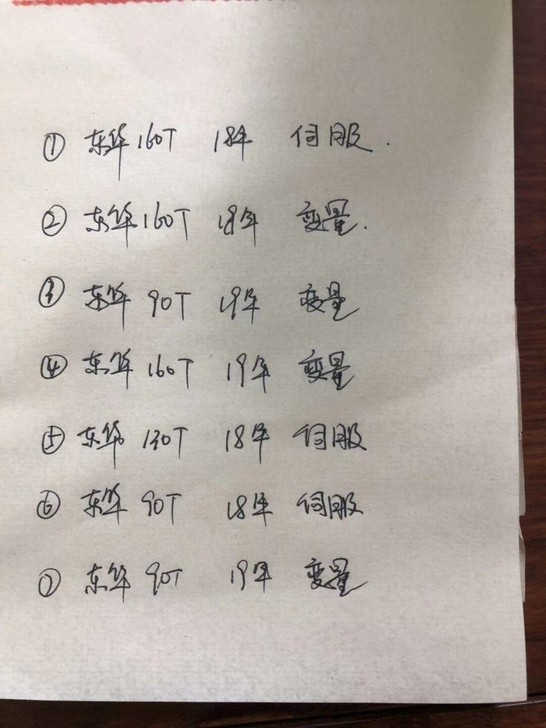 ① 东华 160T 18年 伺服.
② 东华 160T 18年 变量.
③ 东华 90T 19年 变量
④ 东华 160T 19年 变量
⑤ 东华 130T 18年 伺服
⑥ 东华 90T 18年 伺服
⑦ 东华 90T 19年 变量